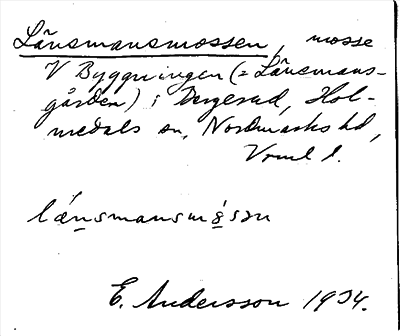 Länsmansmossen, mosse
V Byggningen (= Länsmans-
gården) i Torgerud, Hol-
medals sn, Nordmarks hd,
Vrml l.
lánsmansmåsən
E. Andersson 1934.